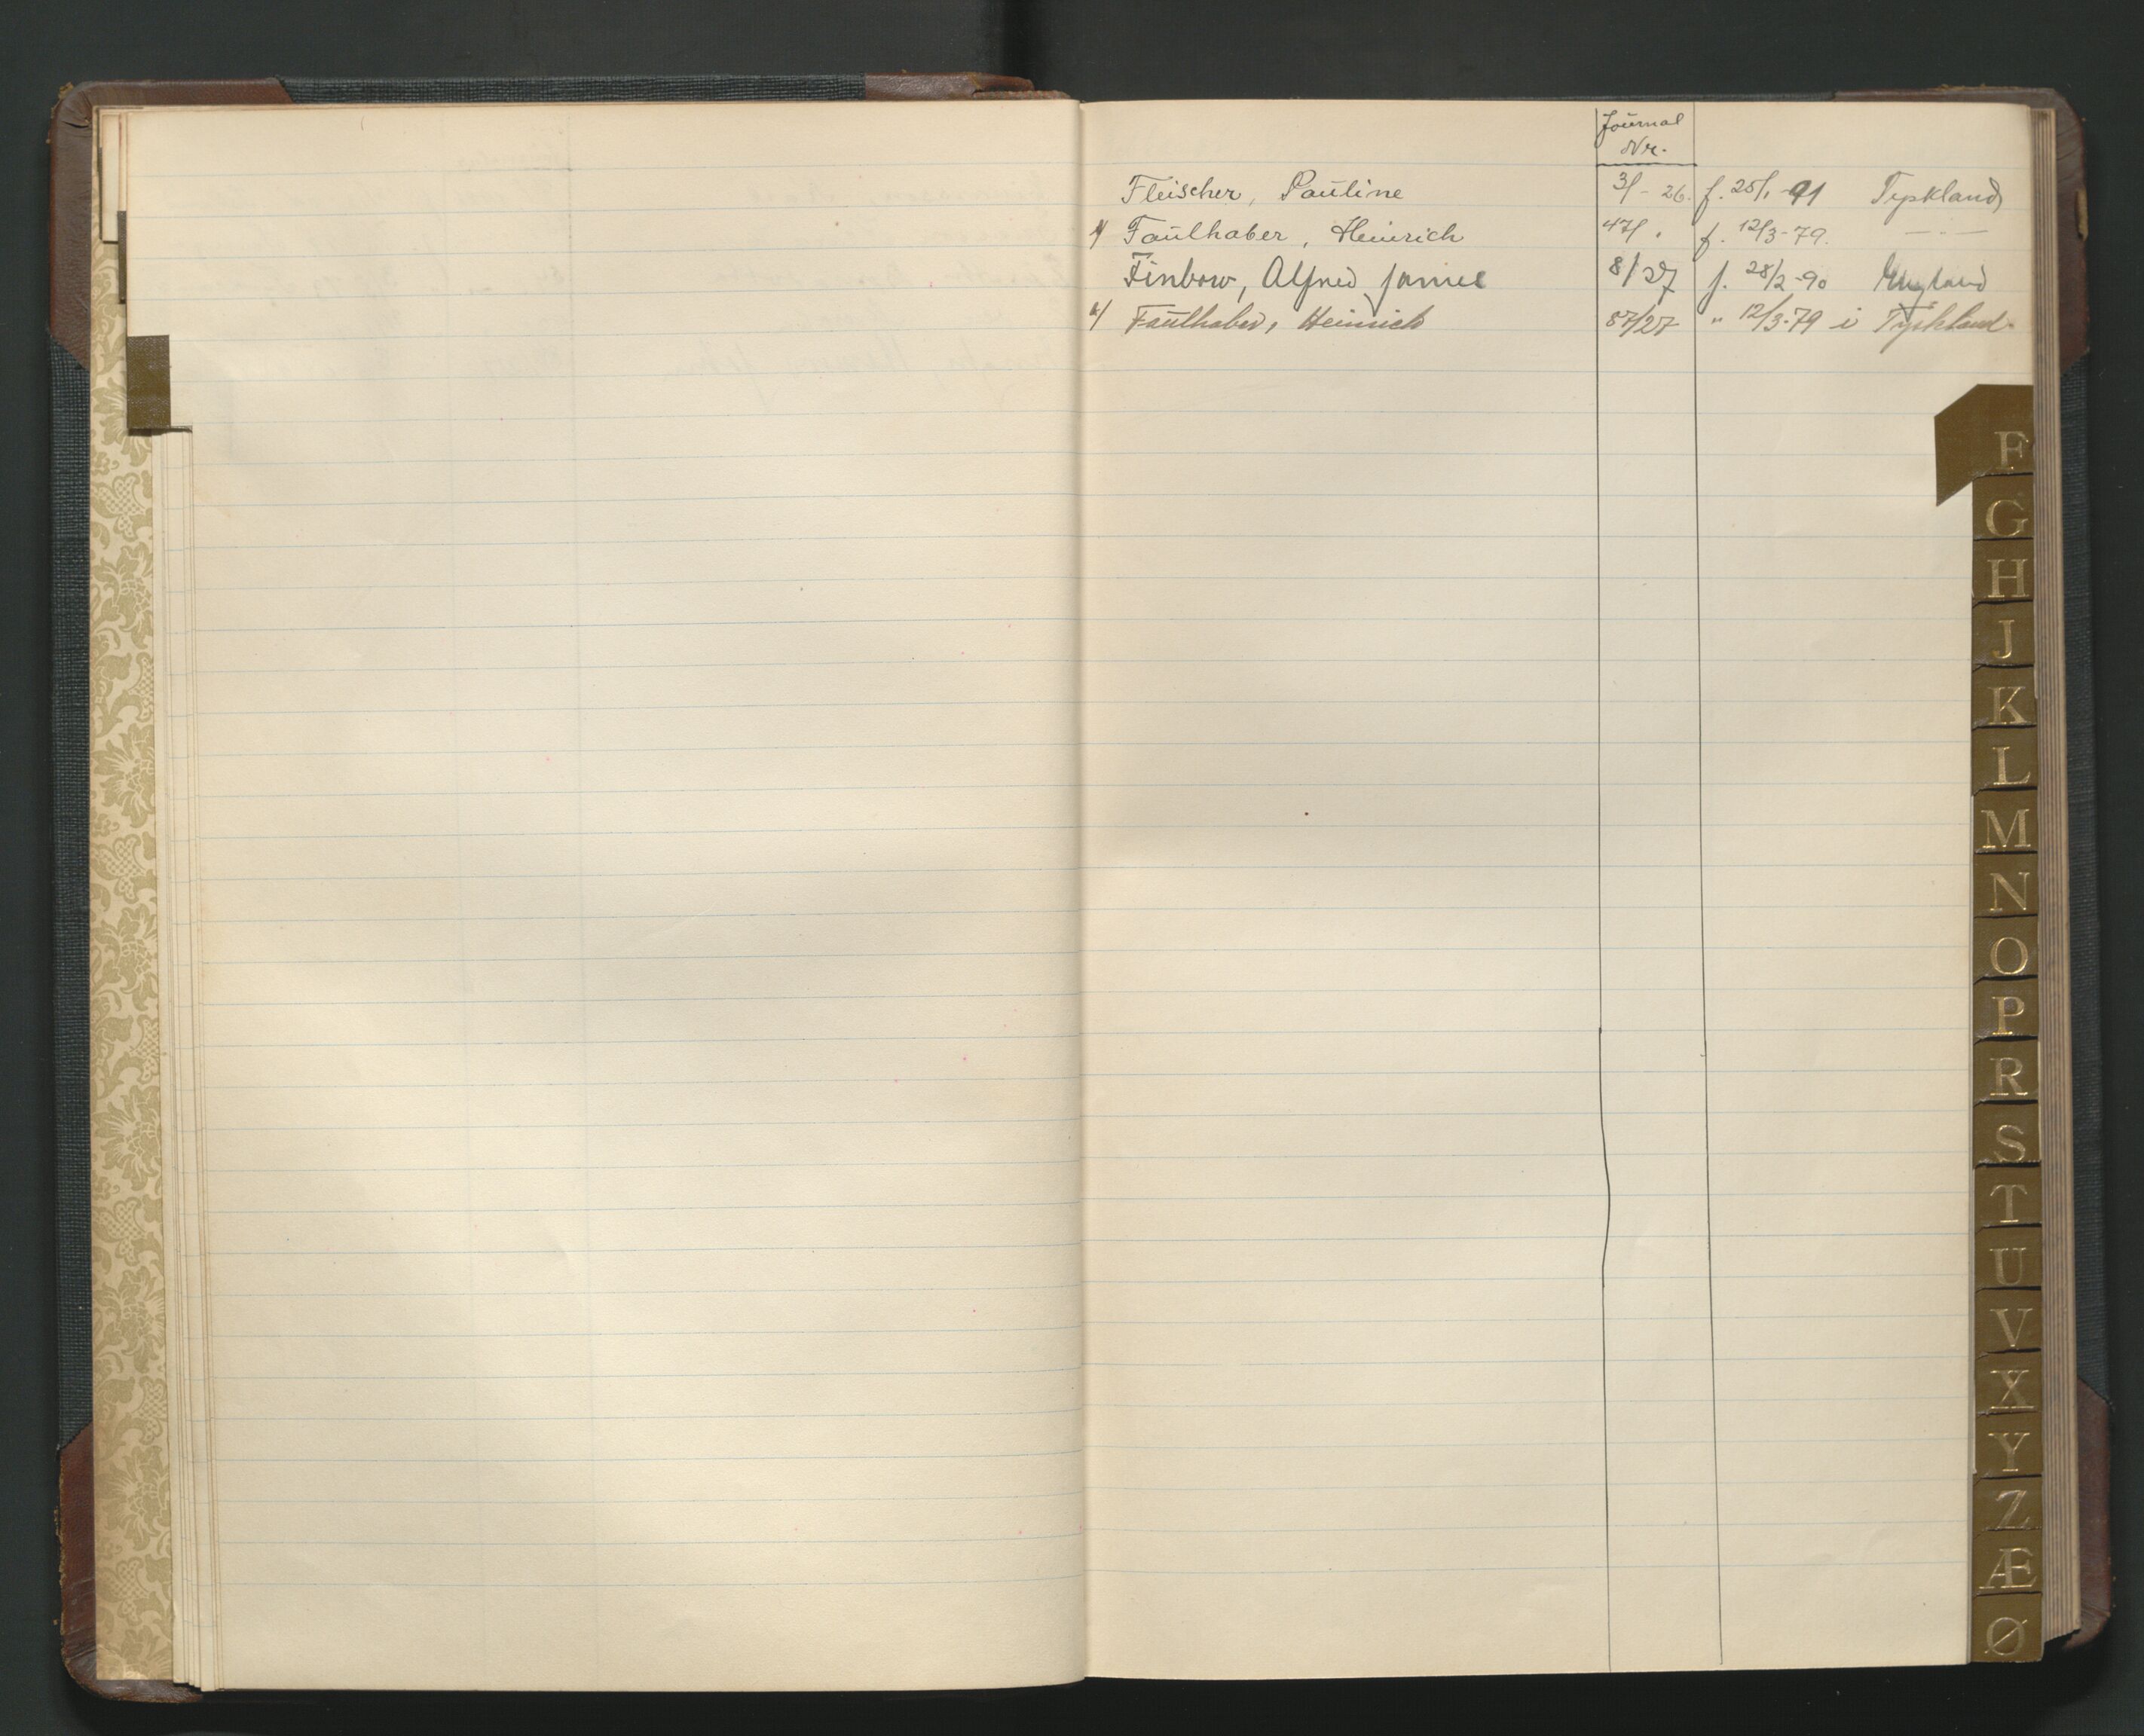 Journal
Nr.
Fleischer, Pauline 3/-26. f. 25/1-91 Tyskland
1/ Faulhaber, Heinrich 47/ " f. 12/3-79. — " —
Finbow, Alfred James 8/27 f. 28/2-90 England
2/ Faulhaber, Heinrich 87/27 " 12/3-79 i Tyskland.
F
G
H
J
K
L
M
N
O
P
R
S
T
U
V
X
Y
Z
Æ
Ø